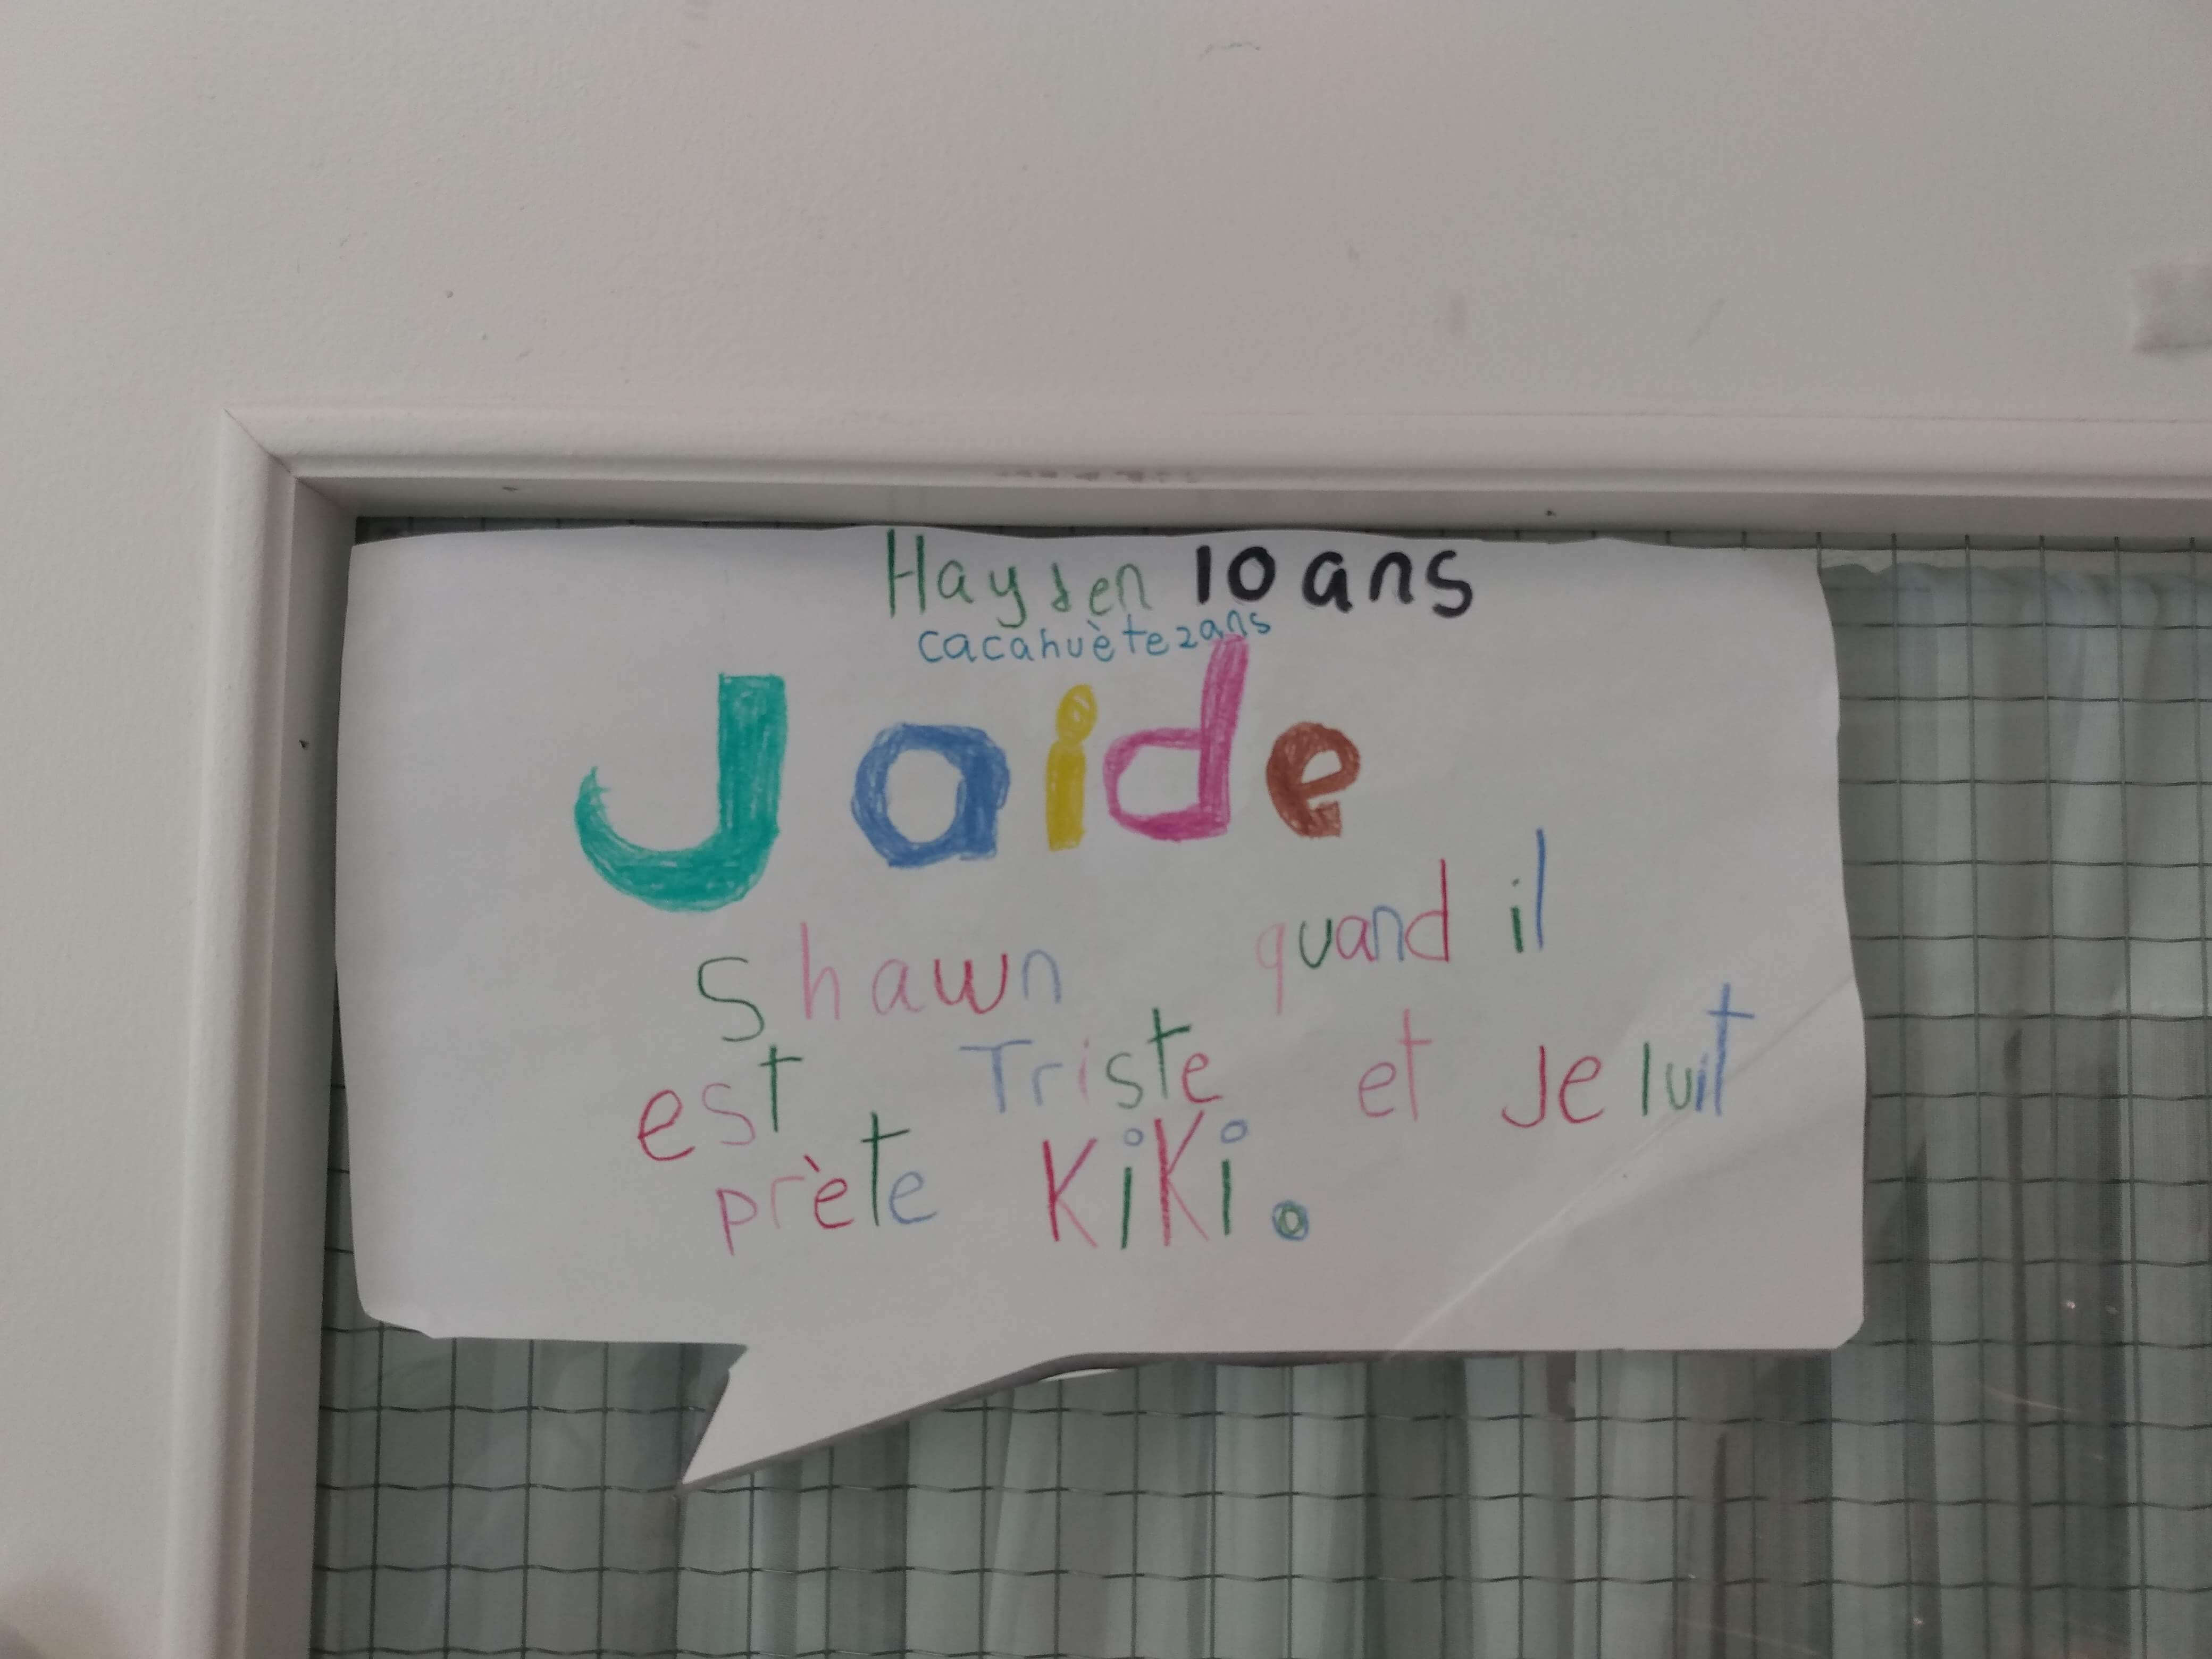 Hayden 10 ans
cacahuète 2 ans
Jaide
Shawn quand il
est Triste et Je luit
prète KiKi.